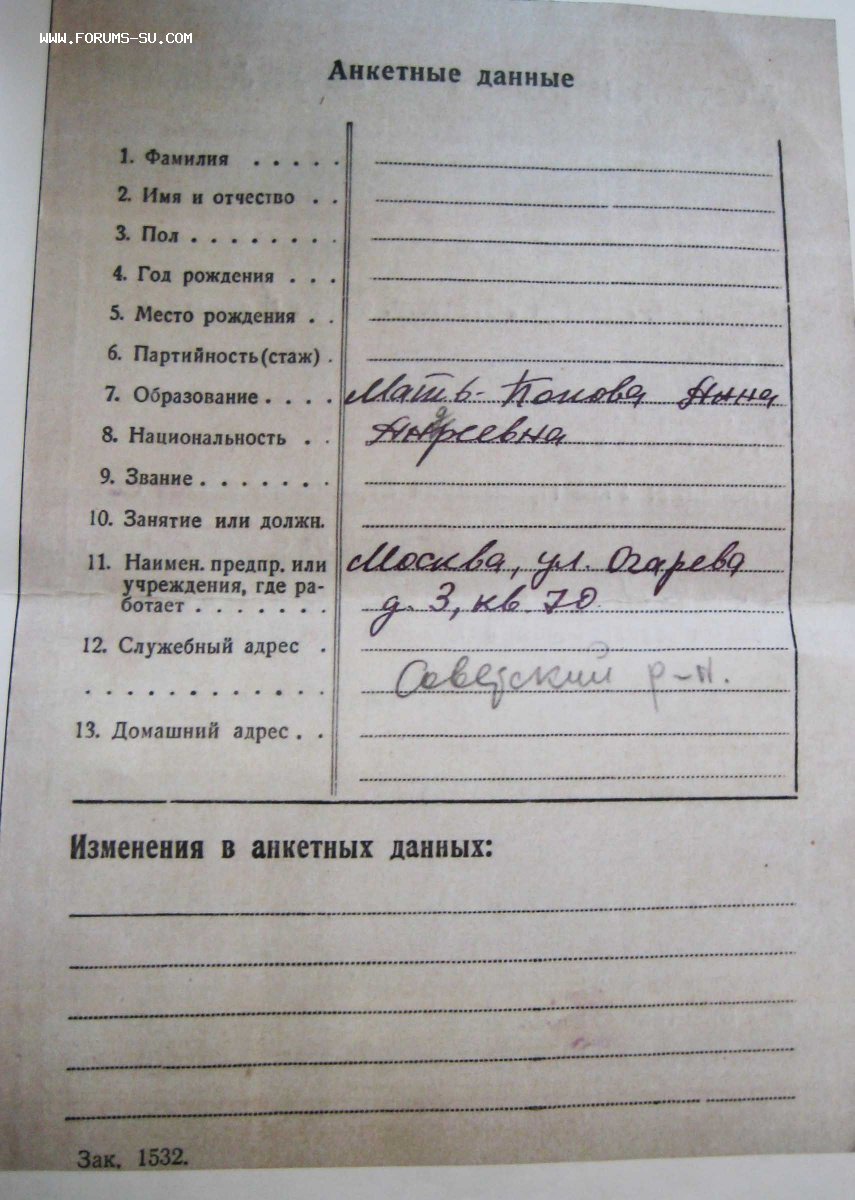 WWW.FORUMS-SU.COM
Анкетные данные
1. Фамилия . . . . .
2. Имя и отчество . .
3. Пол . . . . . . . .
4. Год рождения . . .
5. Место рождения . .
6. Партийность(стаж) .
7. Образование . . . . Мать - Попова Анна
8. Национальность . . Андреевна
9. Звание . . . . . . .
10. Занятие или должн.
11. Наимен. предпр. или Москва, ул. Огарева
учреждения, где ра-
ботает . . . . . . . д. 3, кв. 70
12. Служебный адрес .
. . . . . . . . . . . . Советский р-н.
13. Домашний адрес . .
Изменения в анкетных данных:
Зак. 1532.